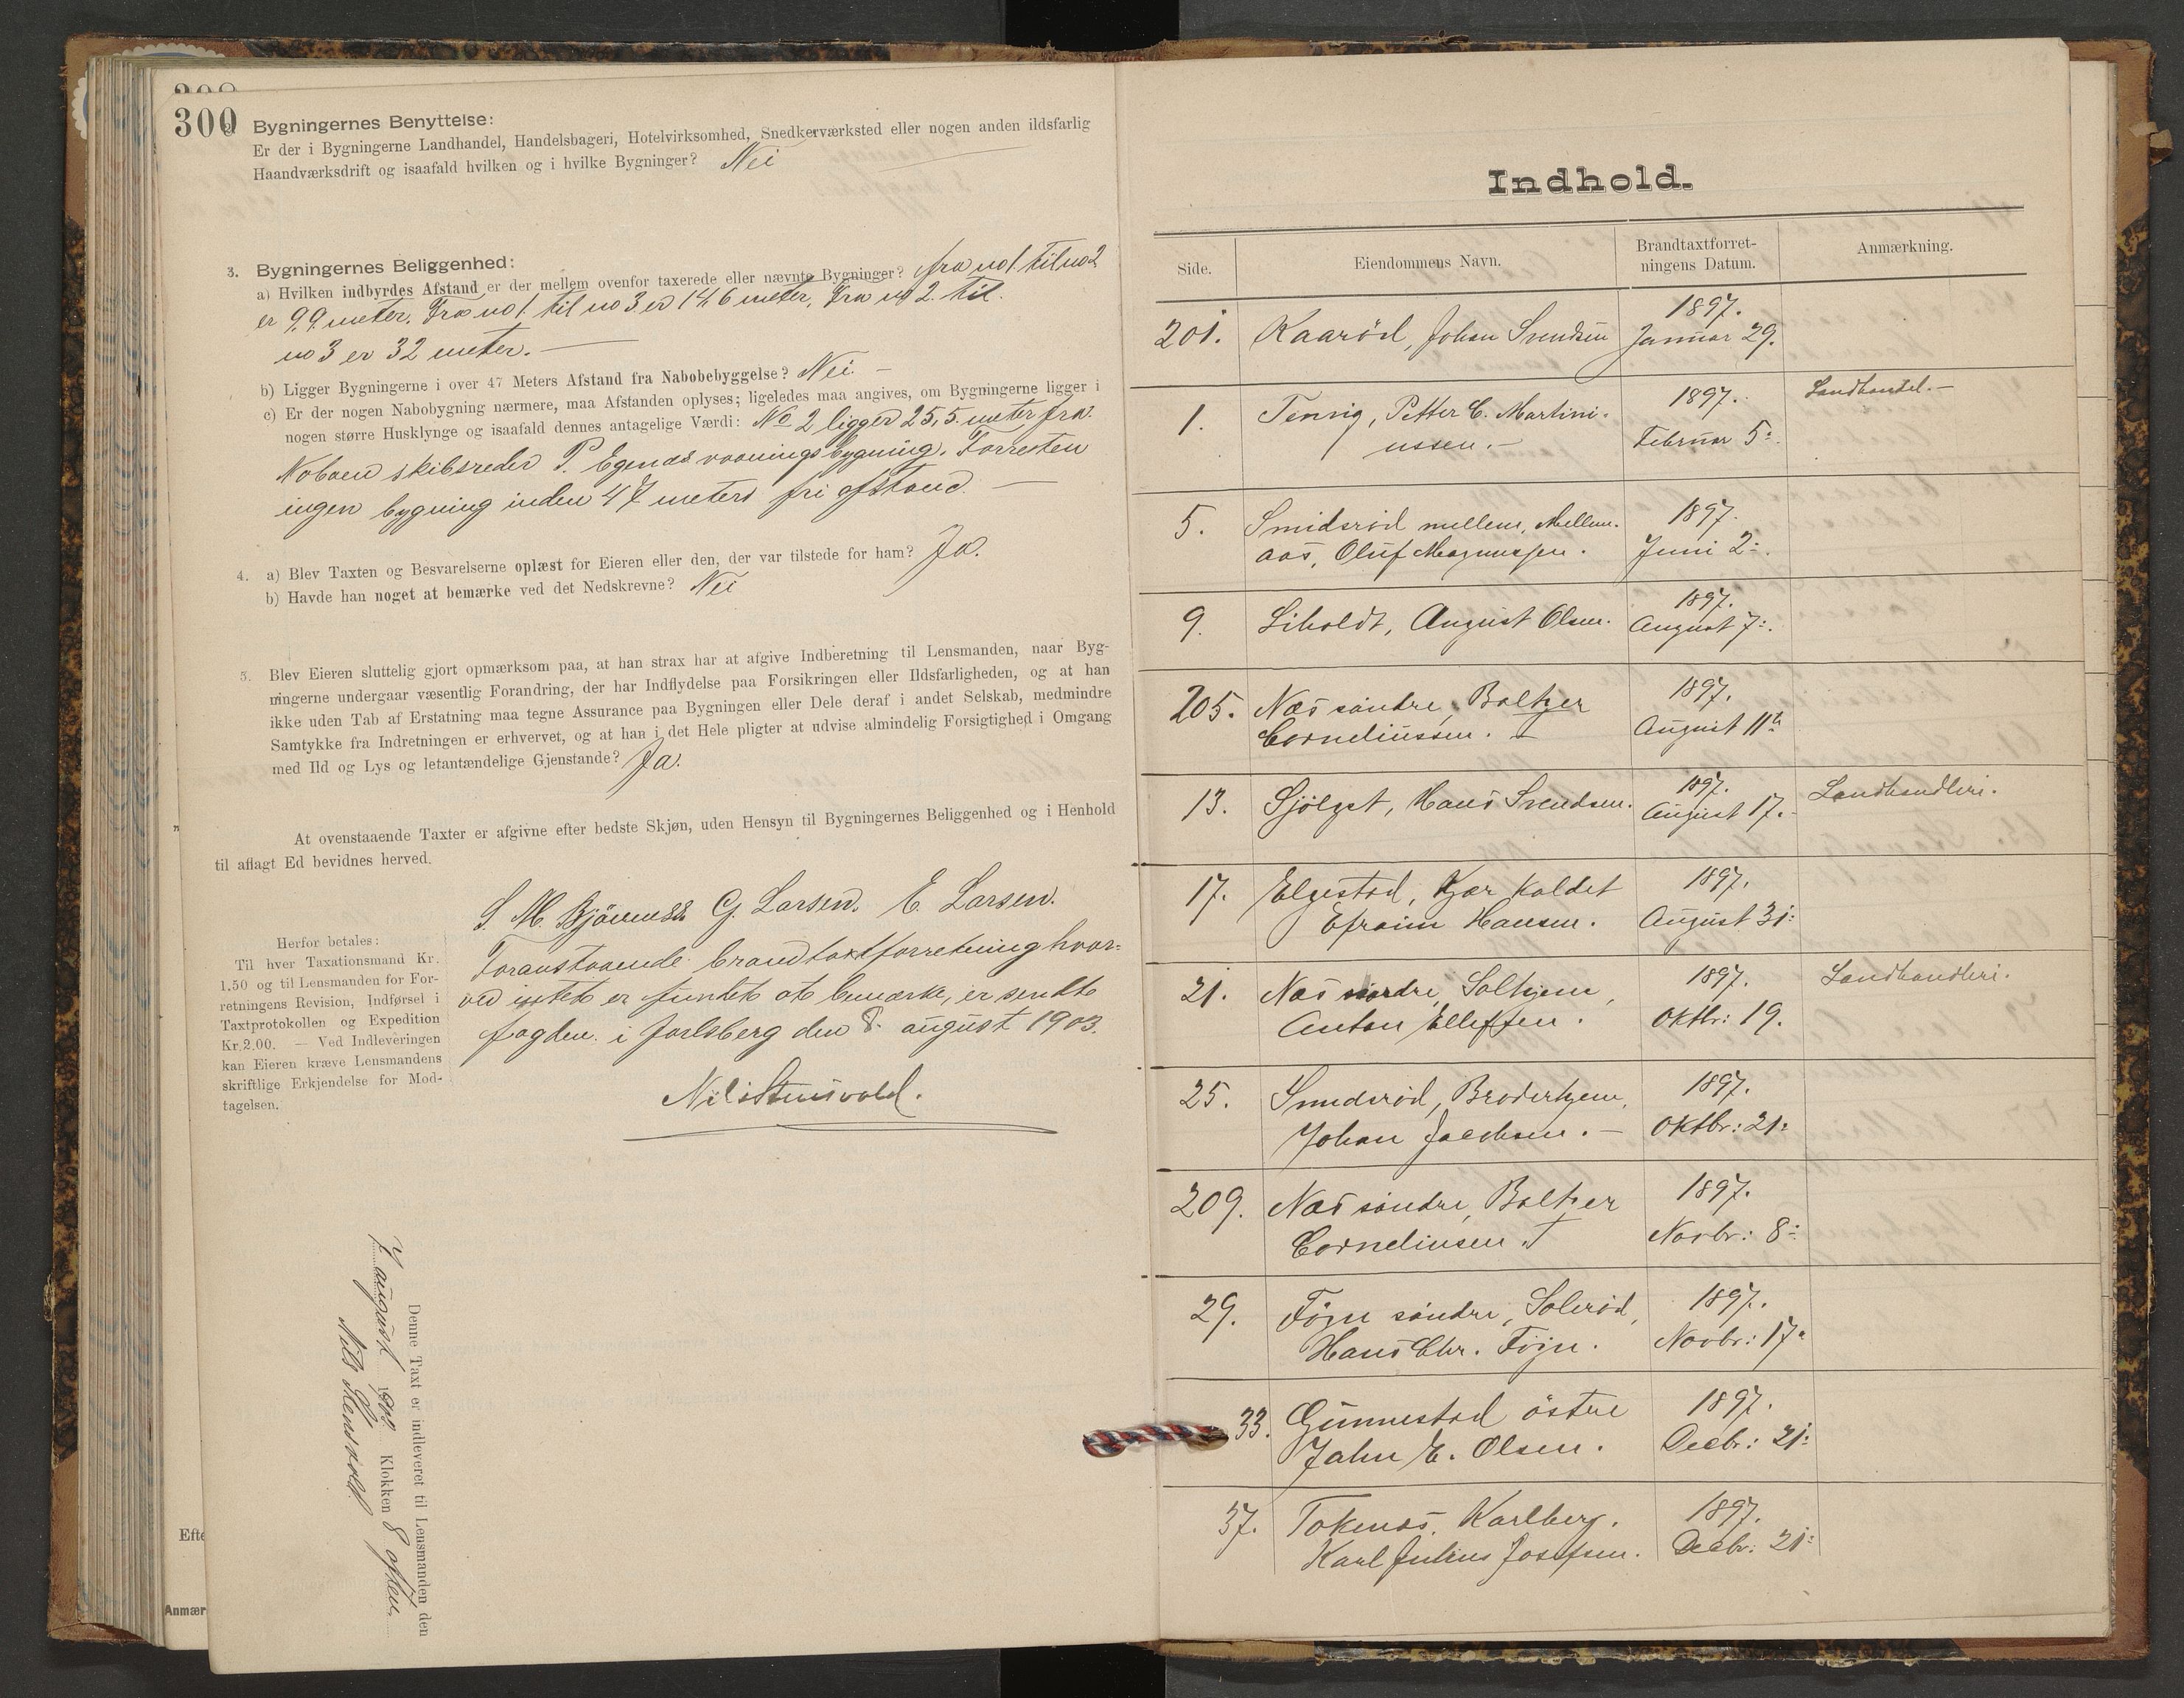 300
2. Bygningernes Benyttelse:
Er der i Bygningerne Landhandel, Handelsbageri, Hotelvirksomhed, Snedkerværksted eller nogen anden ildsfarlig
Haandværksdrift og isaafald hvilken og i hvilke Bygninger? Nei
3. Bygningernes Beliggenhed:
a) Hvilken indbyrdes Afstand er der mellem ovenfor taxerede eller nævnte Bygninger? fra no 1 til no 2
er 9,9 meter. Fra no 1 til no 3 er 14,6 meter, Fra no 2 til
no 3 er 32 meter. —
b) Ligger Bygningerne i over 47 Meters Afstand fra Nabobebyggelse? Nei —
c) Er der nogen Nabobygning nærmere, maa Afstanden oplyses; ligeledes maa angives, om Bygningerne ligger i
nogen større Husklynge og isaafald dennes antagelige Værdi: No 2 ligger 25,5 meter fra
Naboen skibsreder P. Egenæs vaaningsbygning. Forresten
ingen bygning inden 47 meters fri afstand —
4. a) Blev Taxten og Besvarelserne oplæst for Eieren eller den, der var tilstede for ham? Ja.
b) Havde han noget at bemærke ved det Nedskrevne? Nei
5. Blev Eieren sluttelig gjort opmærksom paa, at han strax har at afgive Indberetning til Lensmanden, naar Byg-
ningerne undergaar væsentlig Forandring, der har Indflydelse paa Forsikringen eller Ildsfarligheden, og at han
ikke uden Tab af Erstatning maa tegne Assurance paa Bygningen eller Dele deraf i andet Selskab, medmindre
Samtykke fra Indretningen er erhvervet, og at han i det Hele pligter at udvise almindelig Forsigtighed i Omgang
med Ild og Lys og letantændelige Gjenstande? Ja.
At ovenstaaende Taxter er afgivne efter bedste Skjøn, uden Hensyn til Bygningernes Beliggenhed og i Henhold
til aflagt Ed bevidnes herved.
S. M. Bjönness G. Larsen. E. Larsen.
Foranstaaende brandtaxtforretning hvor-
ved intet er fundet at bemærke, er sendt
fogden i Jarlsberg den 8. august 1903.
Nils Stensvold.
Herfor betales:
Til hver Taxationsmand Kr.
1.50 og til Lensmanden for For-
retningens Revision, Indførsel i
Taxtprotokollen og Expedition
Kr. 2.00. — Ved Indleveringen
kan Eieren kræve Lensmandens
skriftlige Erkjendelse for Mod-
tagelsen.
Denne Taxt er indleveret til Lensmanden den
7 august 1903 Klokken 8 aften.
Nils Stensvold
Efte
Anmær
Indhold.
Side. Eiendommens Navn. Brandtaxtforret-
ningens Datum. Anmærkning.
201. Kaarød, Johan Svendsen 1897.
Januar 29.
1. Tenvig, Petter C. Martini-
ussen. — 1897.
Februar 5. Landhandel. —
5. Smidsrød mellem, Mellem-
aas, Oluf Magnussen. 1897.
Juni 2.
9. Liholdt, August Olsen. 1897.
August 7.
205. Næs søndre, Baltzer
Corneliussen. 1897.
August 11
13. Sjölyst, Hans Svendsen. 1897.
August 17. Landhandleri.
17. Elgestad, Kjær kaldet
Efraim Hansen. 1897.
August 31.
21. Næs nordre, Solhjem,
Anton Ellefsen. 1897.
Oktbr: 19. Landhandleri.
25. Smidsrød, Broderhjem,
Johan Jacobsen. — 1897.
Oktbr: 21.
209. Næs søndre, Baltzer
Corneliusen 1897.
Novbr: 8.
29. Föyn söndre, Solerød,
Hans Chr. Föyn. 1897.
Novbr: 17.
33. Gunnestad östre
Jahn E. Olsen. 1897.
Decbr: 21.
37. Tokenæs, Karlberg.
Karl Julius Josefsen. 1897.
Decbr: 21.